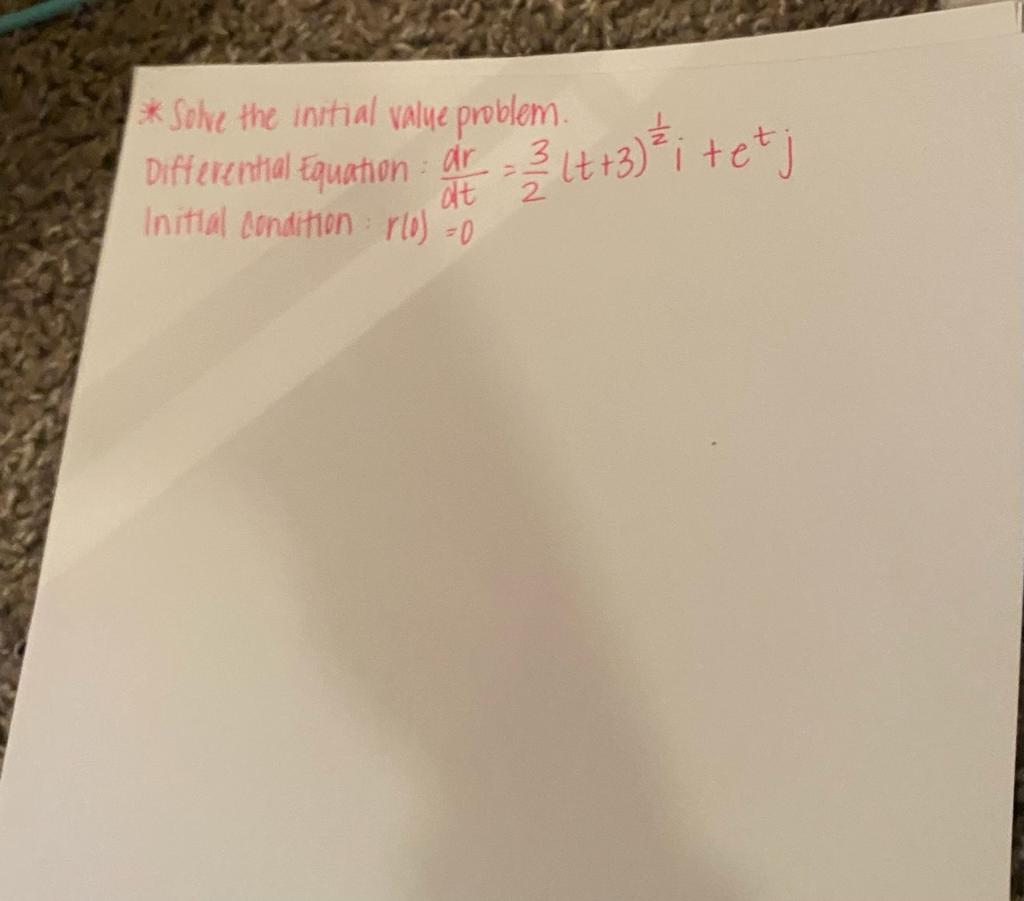 * Solve the initial value problem.
Differential Equation : dr/dt = 3/2 (t+3)^1/2 i + e^t j
Initial condition : r(0) = 0